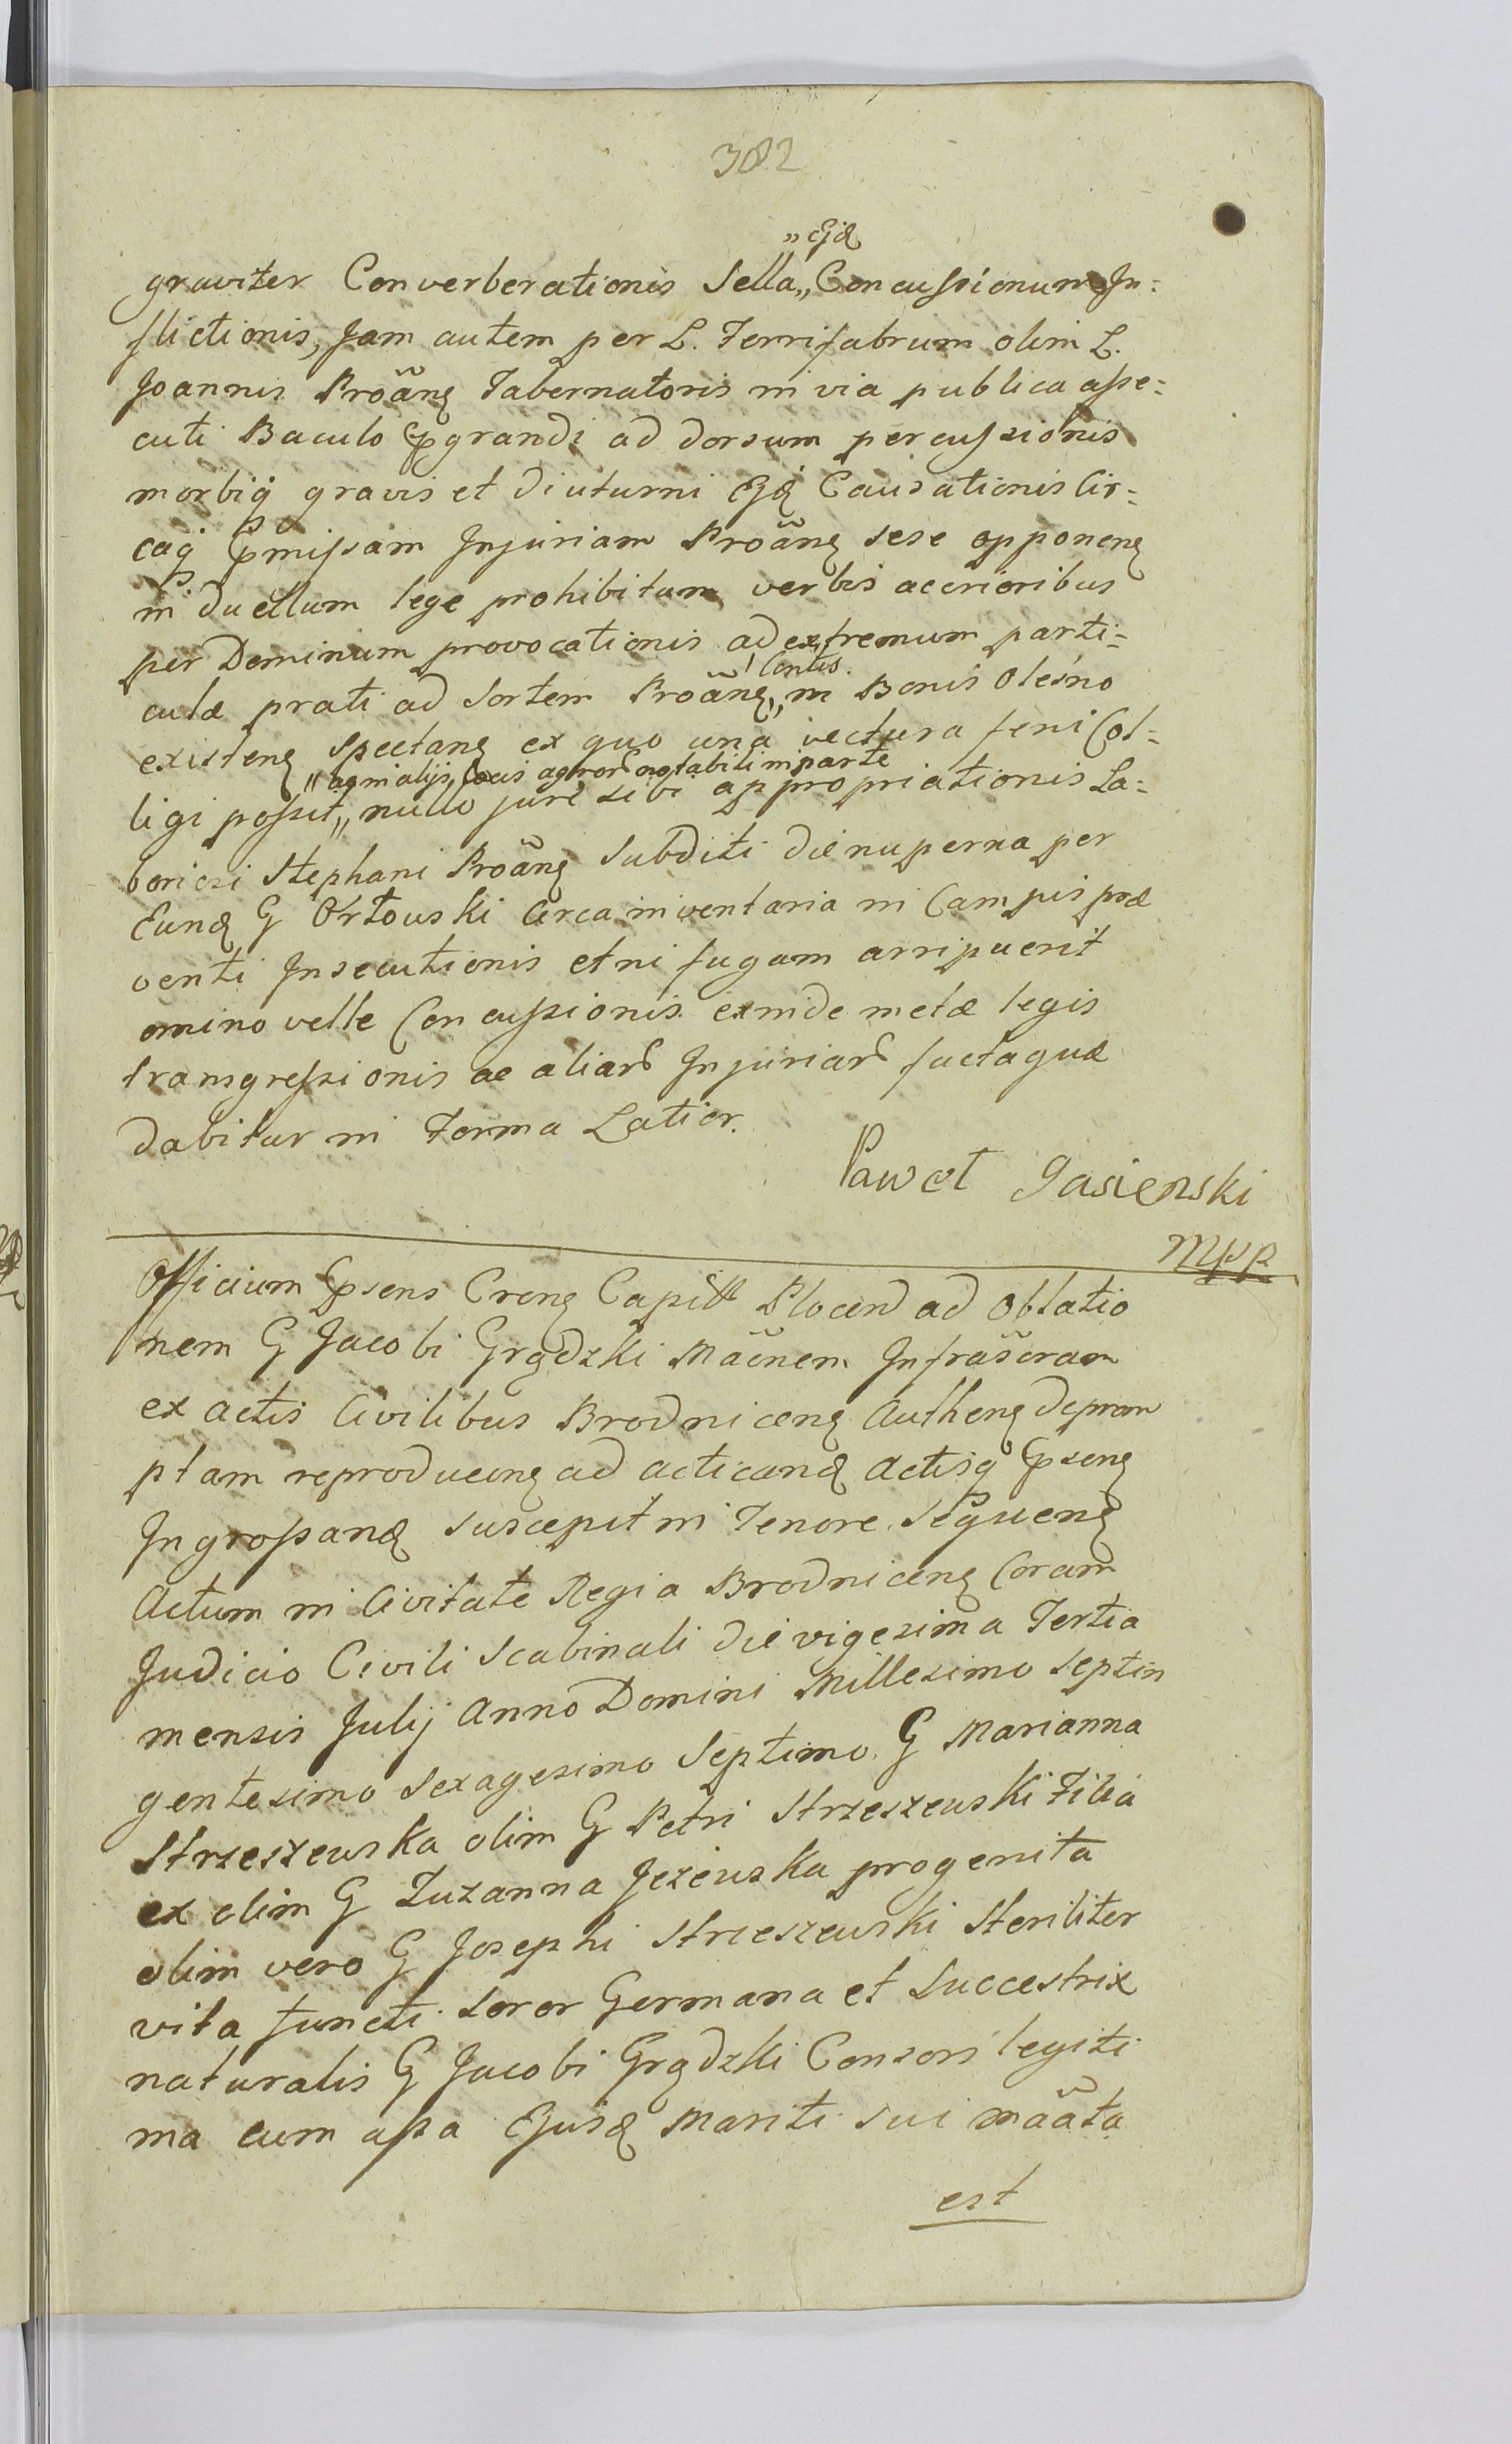 382
„Ejd
graviter Converberationis Sella„ Concussionum In=
flictionis, Jam autem per L. Ferrifabrum olim L.
Joannis Proãng Tabernatoris in via publica asse=
cuti Baculo Pgrandi ad dorsum percussionis
morbiq gravis et diuturni Ejd Causationis Cir=
caq Pmissam Injuriam Proãng sese opponeng
in duellum lege prohibitum verbis acerioribus
per Dominum provocationis ad extremum parti=
Contis.
culæ prati ad Sortem Proãng„ in Bonis Oleśno
existeng Spectang ex quo una vectura feni Col=
„ac in alijs Locis agror notabili in parte
ligi possit„ nullo jure sibi appropriationis La=
boriosi Stephani Proãng Subditi die nuperna per
Eund G Ortowski Circa inventaria in Campis præ
venti Insecutionis et ni fugam arripuerit
omino velle Concussionis exinde metæ legis
transgressionis ac aliar Injuriar facta quæ
dabitur in Forma Latior.
Paweł Jasienski
mpp
Officium Psens Crens Capitl Plocen ad Oblatio
nem G Jacobi Grądzki Mãcnem Infrascram
ex actis Civilibus Brodniceng Autheng deprom
ptam reproduceng ad acticand Actisq Pseng
Ingrossand suscepit in Tenore Sequeng
Actum in Civitate Regia Brodniceng Coram
Judicio Civili Scabinali die vigesima Tertia
mensis Julij Anno Domini Millesimo Septin
gentesimo Sexagesimo Septimo. G Marianna
Strzeszewska olim G Petri Strzeszewski Filia
ex olim G Zuzanna Jeżewska progenita
olim vero G Josephi Strzeszewski Steriliter
vita functi Soror Germana et Succestrix
naturalis G Jacobi Grądzki Consors legiti
ma cum assa Ejusd Mariti sui mãata
est